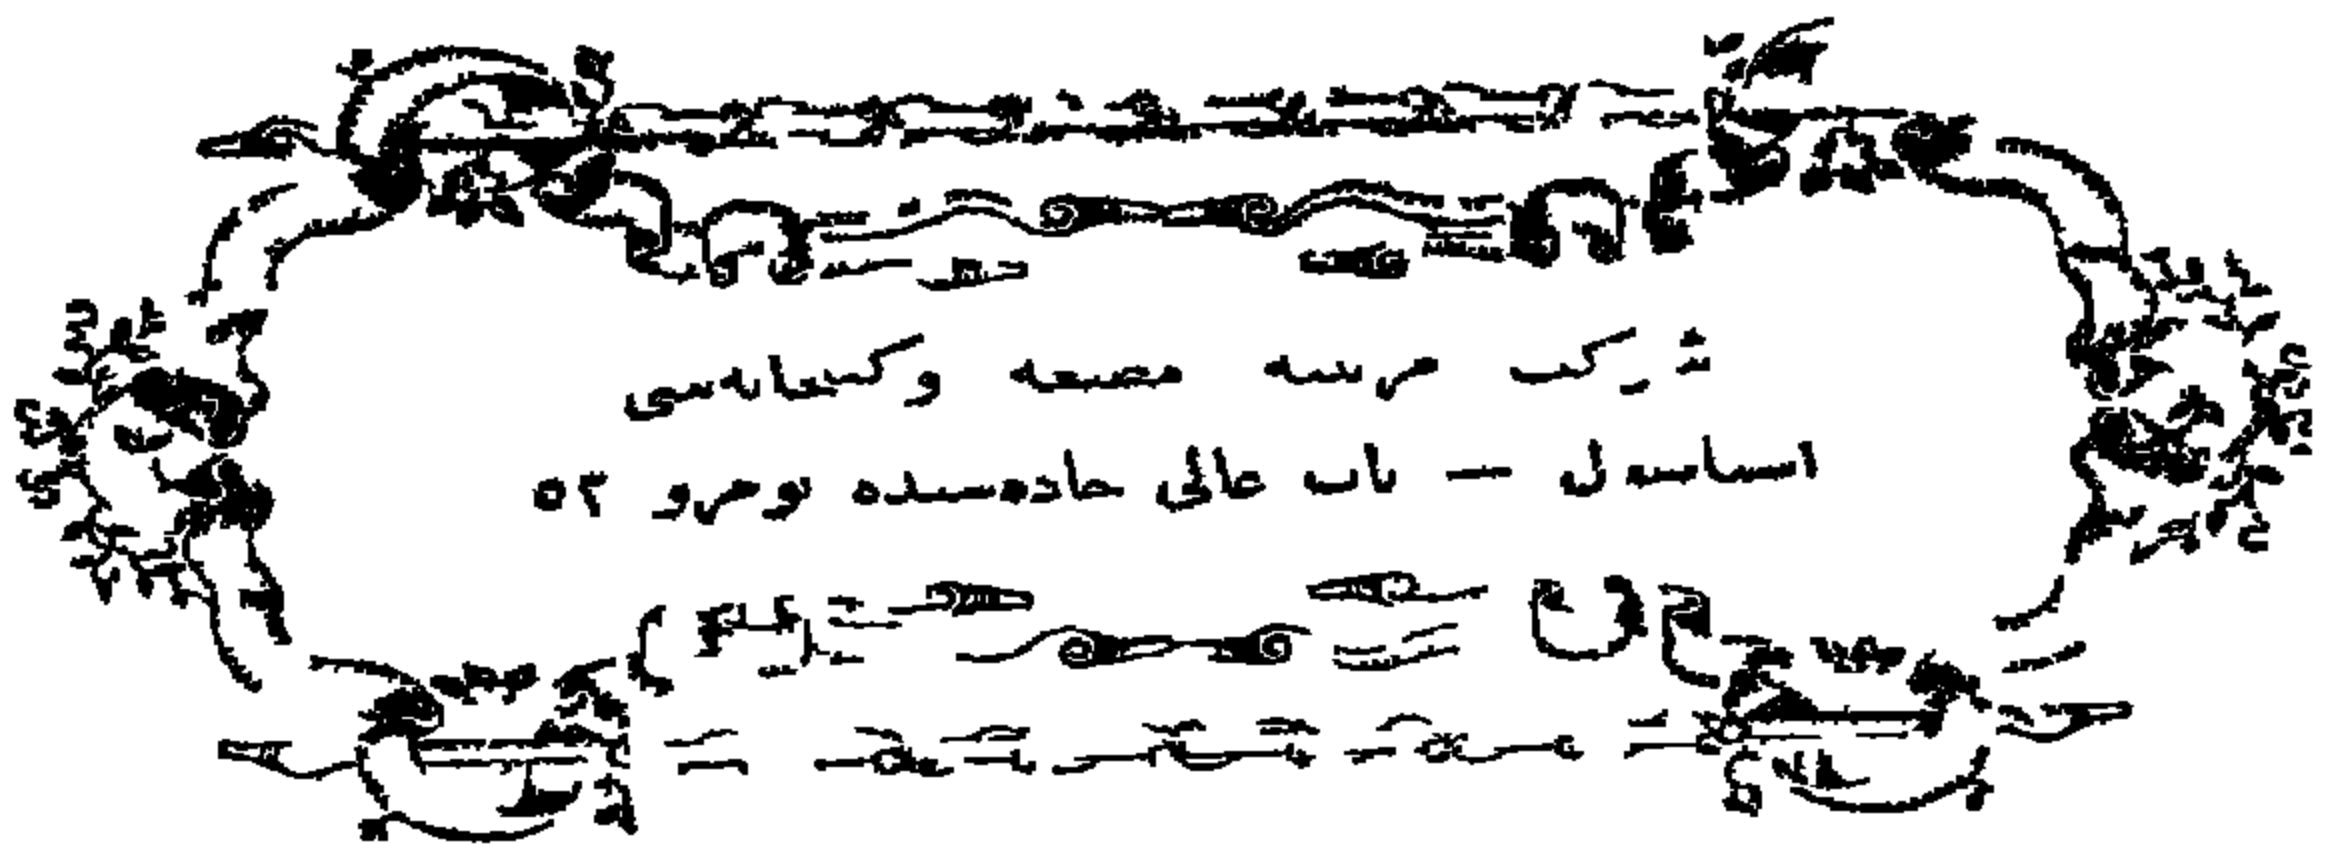 شرکت مرتبیه مطبعه و کتبخانه‌سی
استانبول — باب عالی جاده‌سنده نومرو ٥٢